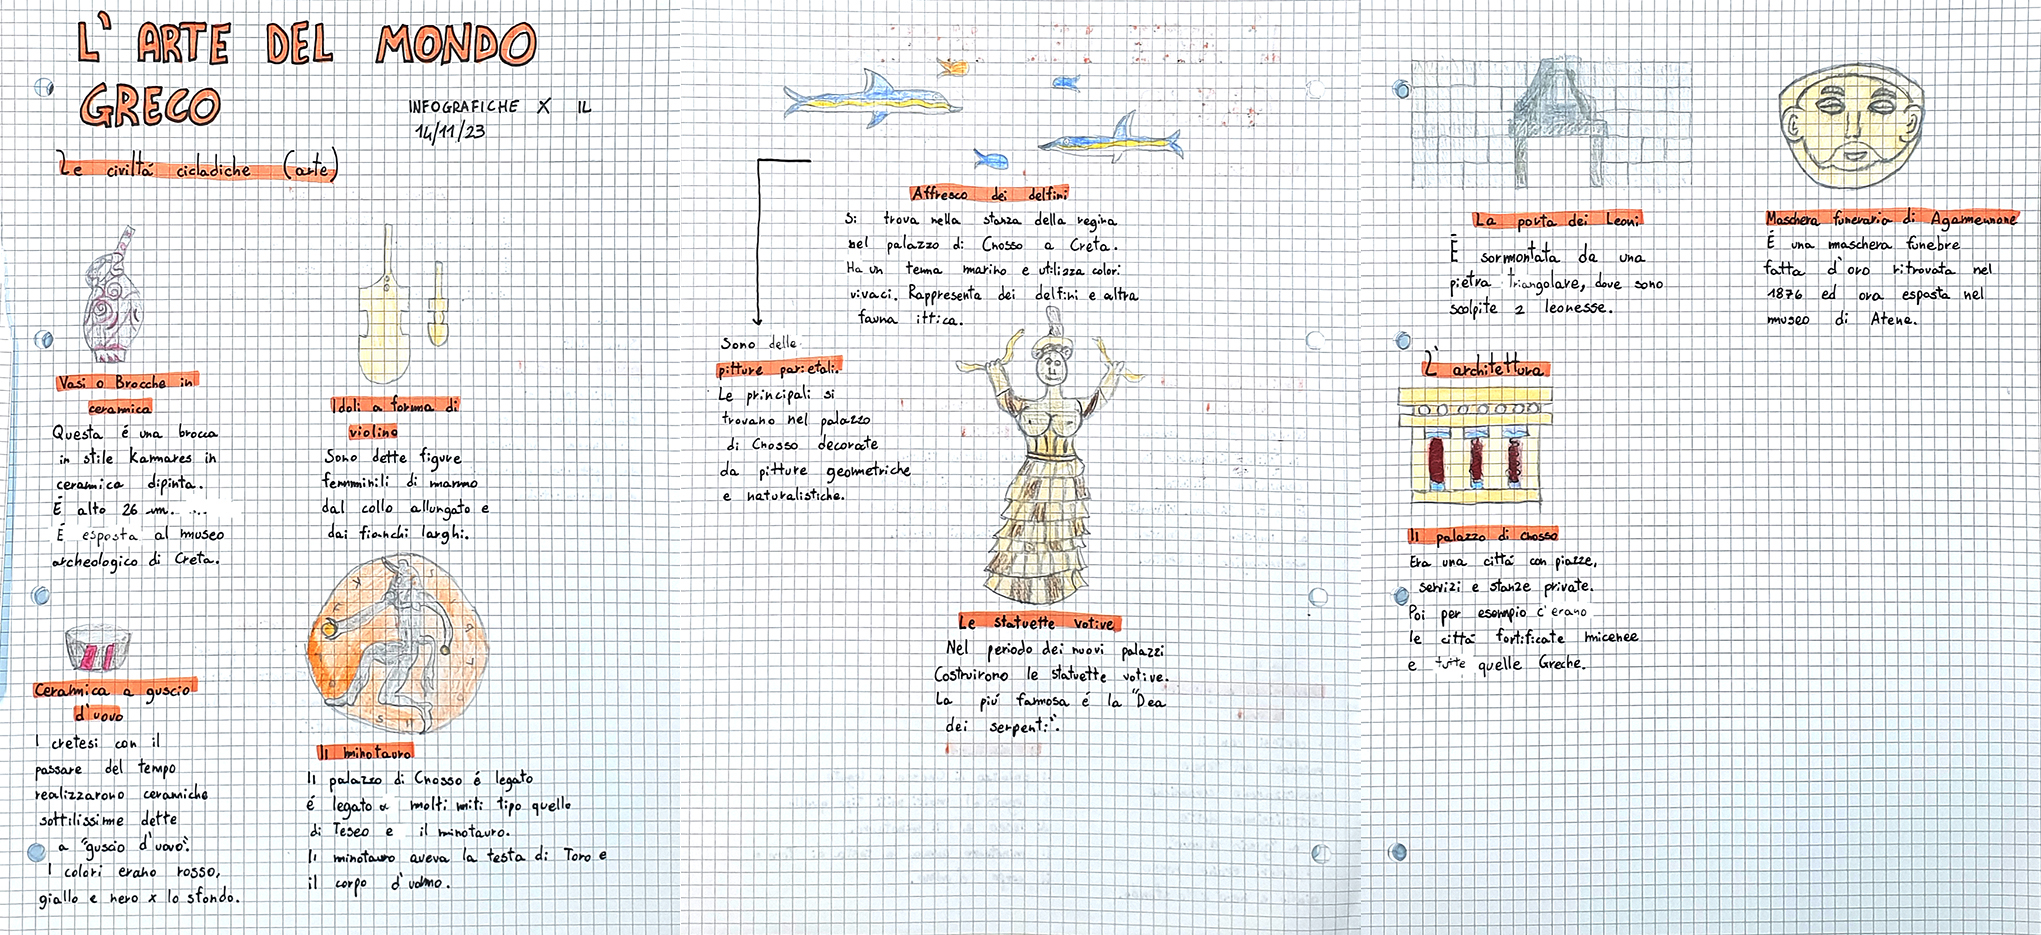 L' ARTE DEL MONDO
GRECO
INFOGRAFICHE X IL
14/11/23
Le civiltá cicladiche (arte)
Vasi o Brocche in
ceramica
Questa é una brocca
in stile Kamares in
ceramica dipinta.
É alto 26 cm. ...
É esposta al museo
archeologico di Creta.
Idoli a forma di
violino
Sono dette figure
femminili di marmo
dal collo allungato e
dai fianchi larghi.
Ceramica a guscio
d'uovo
I cretesi con il
passare del tempo
realizzarono ceramiche
sottilissime dette
a "guscio d'uovo".
I colori erano rosso,
giallo e nero x lo sfondo.
Il minotauro
Il palazzo di Cnosso é legato
é legato a molti miti tipo quello
di Teseo e il minotauro.
Il minotauro aveva la testa di Toro e
il corpo d'uomo.
Affresco dei delfini
Si trova nella stanza della regina
nel palazzo di Cnosso a Creta.
Ha un tema marino e utilizza colori
vivaci. Rappresenta dei delfini e altra
fauna ittica.
Sono delle
pitture parietali.
Le principali si
trovano nel palazzo
di Cnosso decorate
da pitture geometriche
e naturalistiche.
Le statuette votive
Nel periodo dei nuovi palazzi
Costruirono le statuette votive.
La piú famosa é la "Dea
dei serpenti".
La porta dei Leoni
É sormontata da una
pietra triangolare, dove sono
scolpite 2 leonesse.
Maschera funeraria di Agamennone
É una maschera funebre
fatta d'oro ritrovata nel
1876 ed ora esposta nel
museo di Atene.
L'architettura
Il palazzo di Cnosso
Era una cittá con piazze,
servizi e stanze private.
Poi per esempio c'erano
le cittá fortificate micenee
e tutte quelle Greche.